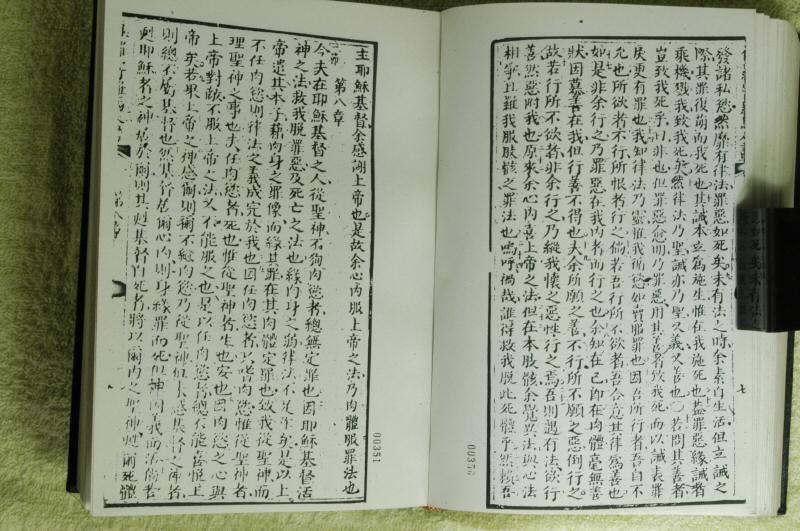 發諸私慾然靡有律法罪惡如死矣未有法之時余素自生活但立誡之
際其罪復萌而我死也其誡本立為施生惟在我施死也蓋罪惡緣誡者
乘機惑我致我死矣然律法乃聖誡亦乃聖又義又善也〇若問其善者
豈致我死乎曰非也但罪惡愈明乃罪惡用其善者致我死而以誡表罪
戾更有罪也我知律法乃靈惟我慾如賣罪也因吾所行者吾自不
允也所欲者不行所恨者行之倘若吾行所不欲者吾合意其律為善也
如是非余行之乃罪惡在我內者而行之也余知在己即在肉體毫無善
狀因嘉善在我但行善不得也夫余所願之善不行所不願之惡倒行之
故若行所不欲者非余行之乃縱我懷之惡性行之焉吾則遇有法欲行
善然惡附我也原來余心內喜上帝之法但在本肢骸余覺有法與心法
相爭且難我服肢骸之罪法也嗚呼禍哉誰得救我脫此死體乎然賴吾
七
00350
主耶穌基督余感謝上帝也是故余心內服上帝之法乃肉體服罪法也
第八章
今夫在耶穌基督之人從聖神不徇肉慾者總無定罪也因耶穌基督活
神之法救我脫罪惡及死亡之法也緣肉身之弱律法不足矣是以上
帝遣其本子藉肉身之罪像而緣其罪在其肉體定罪也致我從聖神而
不任肉慾則律法之義成完於我也因任肉慾者以嗜肉慾惟從聖神者
理聖神之事也夫任肉慾者死也惟從聖神者生也安也因肉慾之心與
上帝對敵不服上帝之法又不能服之也是以任肉慾者總不能喜悅上
帝矣若果上帝之神感爾則爾不縱肉慾乃從聖神但未感基督之神者
則總不屬基督也然基督居爾心內則身緣罪而死但神因義而活倘若
甦耶穌者之神居於爾則其甦基督自死者將以爾內之聖神甦爾死體
第八章
00351